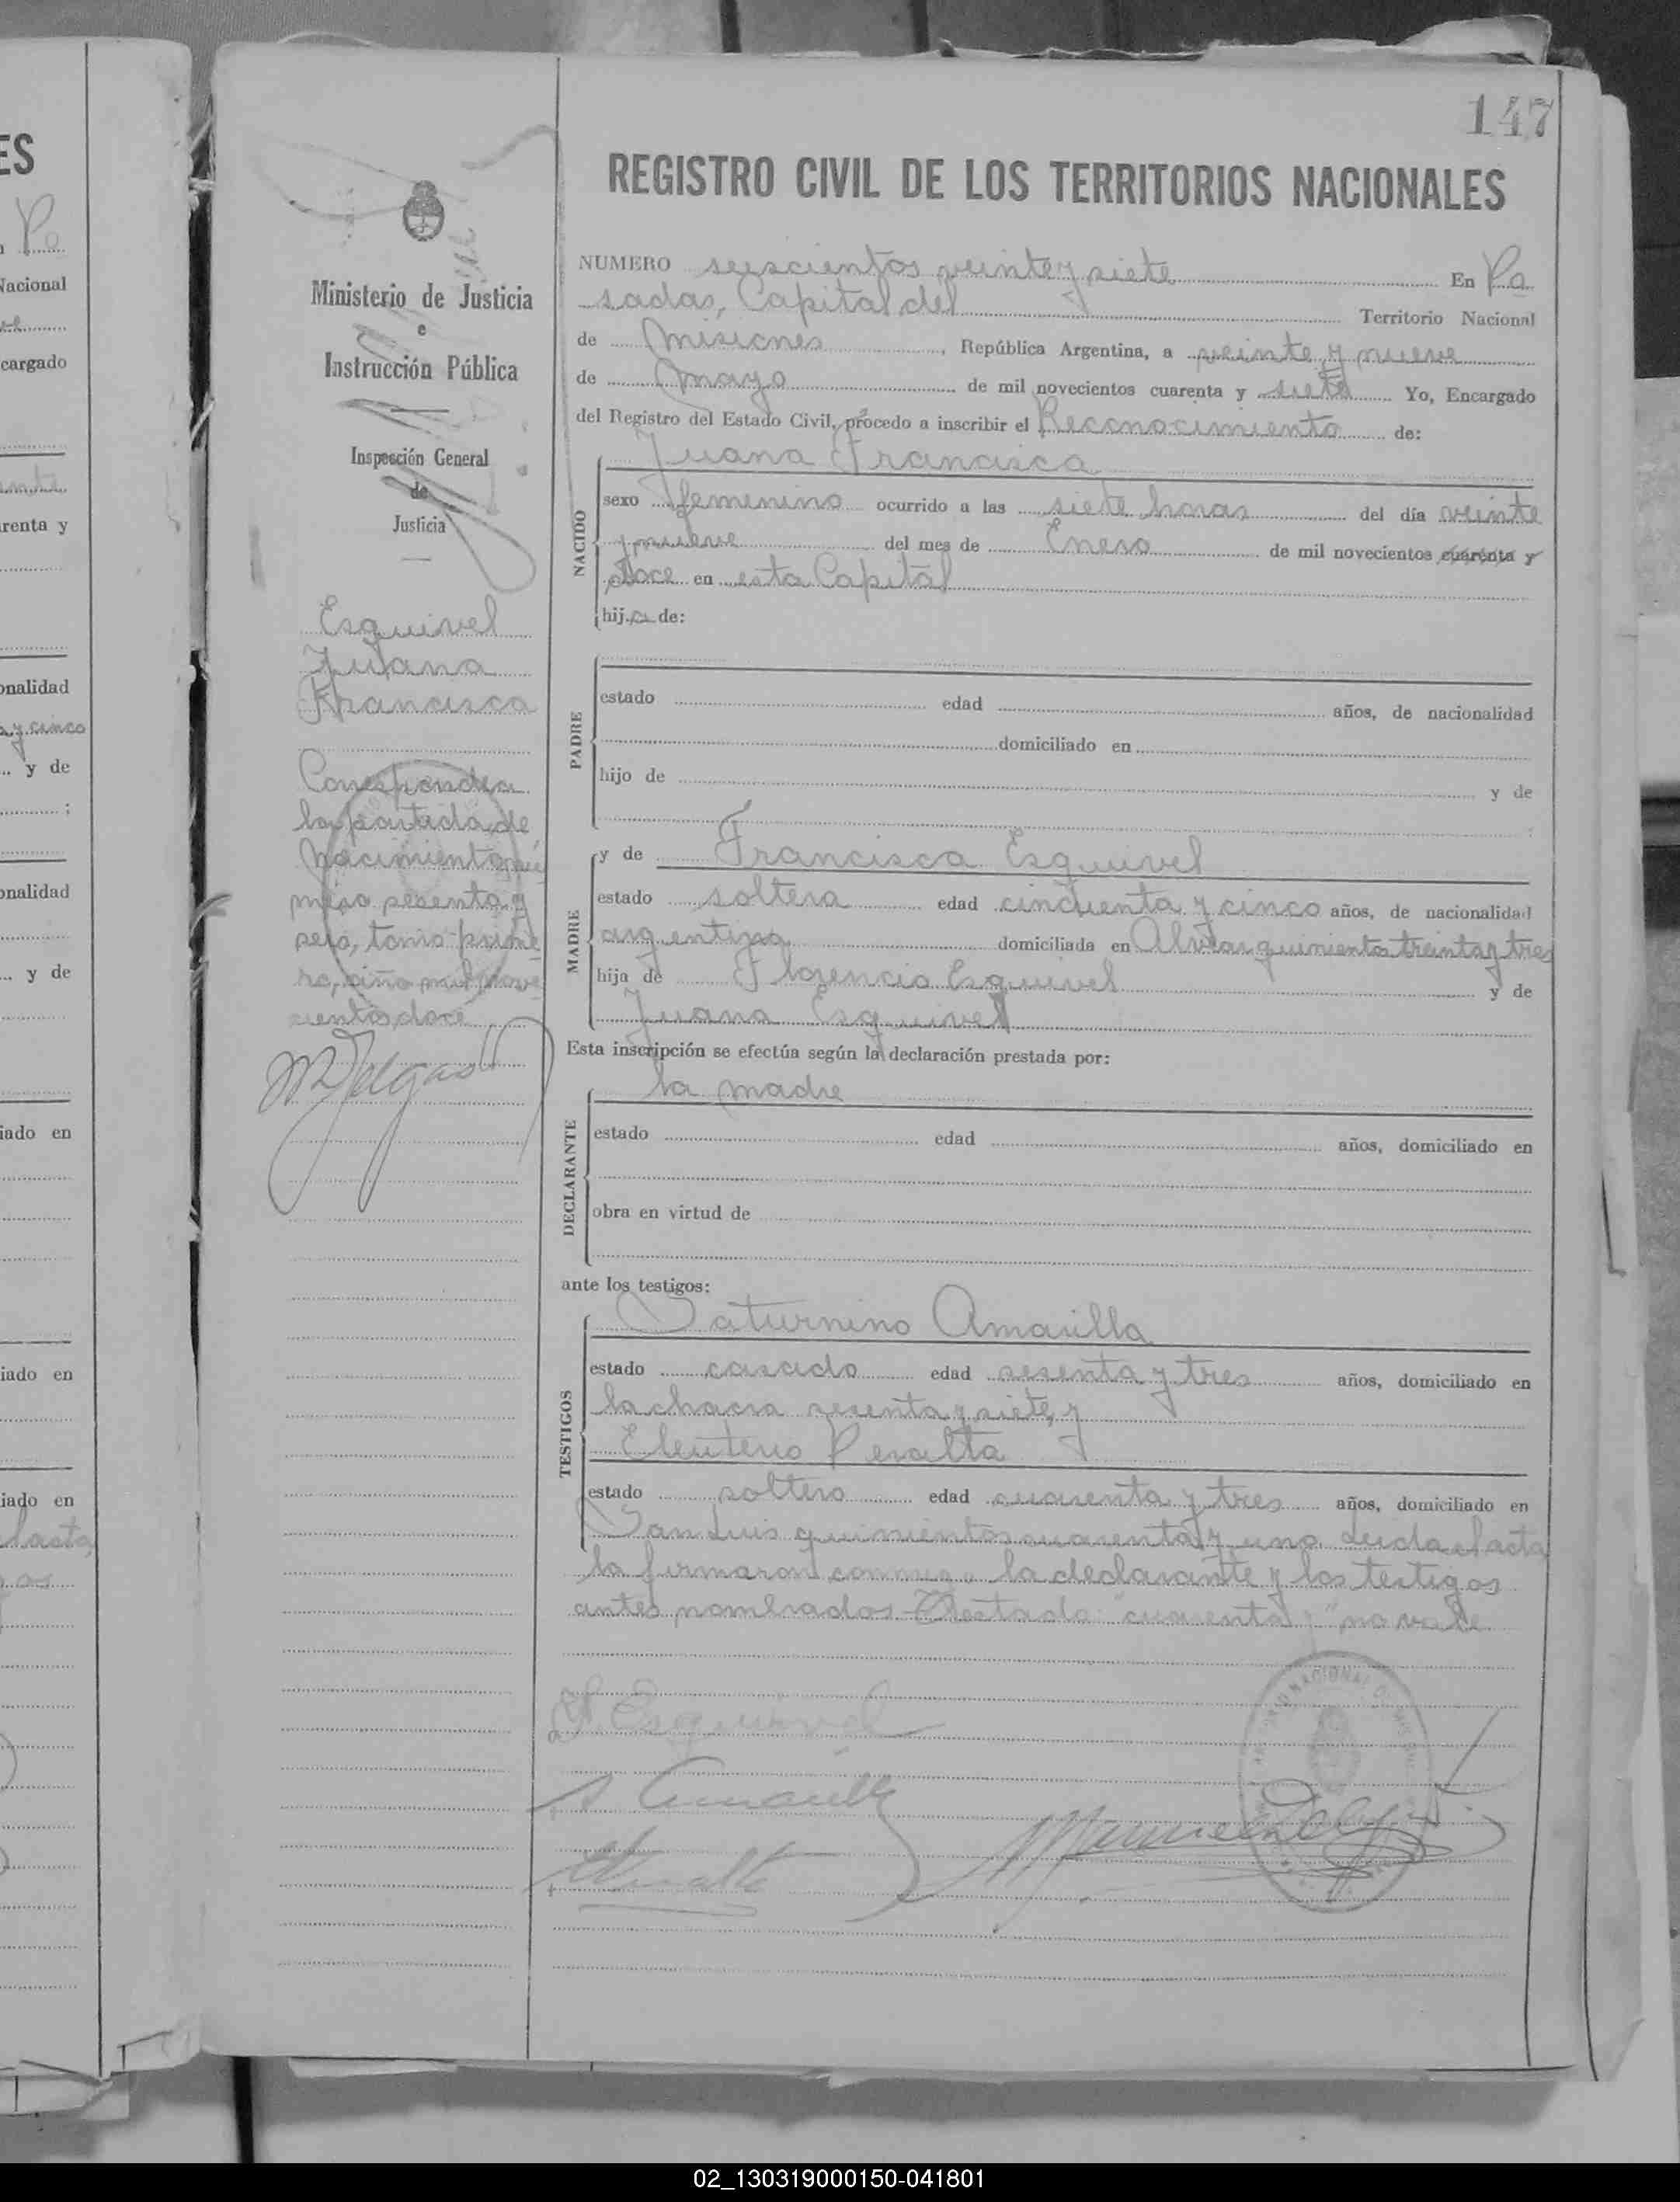 147
REGISTRO CIVIL DE LOS TERRITORIOS NACIONALES
Ministerio de Justicia
e
Instrucción Pública
Inspección General
de
Justicia
Esquivel
Juana
Francisca
Corresponde a
la partida de
Nacimiento nú
mero sesenta y
seis, tomo prime
ro, año mil nove
cientos doce
MDelgado
NUMERO seiscientos veinte y siete En Po
sadas, Capital del Territorio Nacional
de Misiones, República Argentina, a veinte y nueve
de Mayo de mil novecientos cuarenta y siete Yo, Encargado
del Registro del Estado Civil, procedo a inscribir el Reconocimiento de:
Juana Francisca
NACIDO
sexo femenino ocurrido a las siete horas del día veinte
y nueve del mes de Enero de mil novecientos cuarenta y
doce en esta Capital
hija de:
PADRE
estado edad años, de nacionalidad
domiciliado en
hijo de y de
;
MADRE
y de Francisca Esquivel
estado soltera edad cincuenta y cinco años, de nacionalidad
argentina domiciliada en quinientos treinta y tres
hija de Florencio Esquivel y de
Juana Esquivel
Esta inscripción se efectúa según la declaración prestada por:
la madre
DECLARANTE
estado edad años, domiciliado en
obra en virtud de
ante los testigos:
TESTIGOS
Saturnino Amarilla
estado casado edad sesenta y tres años, domiciliado en
la chacra sesenta y siete, y
Eleuterio Peralta
estado soltero edad cuarenta y tres años, domiciliado en
San Luis quinientos cuarenta y uno. Leida el acta
la firmaron conmigo la declarante y los testigos
antes nombrados. Testado: "cuarenta y" no vale
Esquivel
S Amarilla
EPeralta
02_130319000150-041801
ES
Po
Nacional
cargado
renta y
onalidad
y cinco
y de
;
onalidad
y de
iado en
iado en
iado en